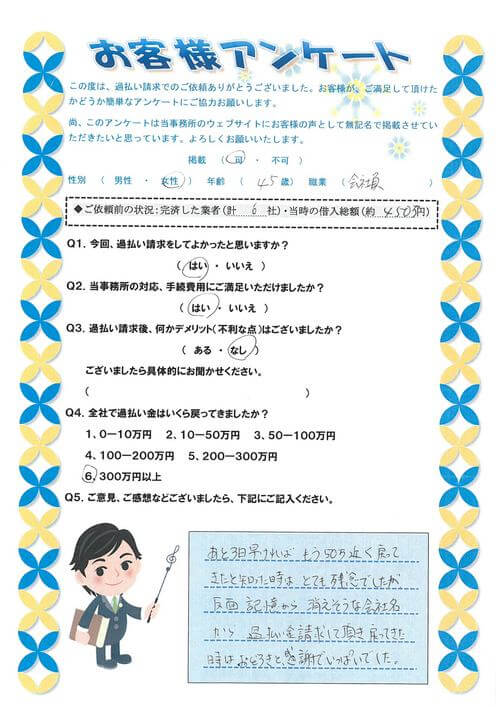 お客様アンケート
この度は、過払い請求でのご依頼ありがとうございました。お客様が、ご満足して頂けた
かどうか簡単なアンケートにご協力お願いします。
尚、このアンケートは当事務所のウェブサイトにお客様の声として無記名で掲載させてい
ただきたいと思っています。よろしくお願いいたします。
掲載 ( 可 ・ 不可 )
性別 ( 男性 ・ 女性 ) 年齢 ( 45歳) 職業 ( 会社員 )
◆ご依頼前の状況:完済した業者(計 6 社)・当時の借入総額(約 450万円)
Q1. 今回、過払い請求をしてよかったと思いますか?
( はい ・ いいえ )
Q2. 当事務所の対応、手続費用にご満足いただけましたか?
( はい ・ いいえ )
Q3. 過払い請求後、何かデメリット(不利な点)はございましたか?
( ある ・ なし )
ございましたら具体的にお聞かせください。
( )
Q4. 全社で過払い金はいくら戻ってきましたか?
1、0-10万円 2、10-50万円 3、50-100万円
4、100-200万円 5、200-300万円
6、300万円以上
Q5. ご意見、ご感想などございましたら、下記にご記入ください。
あと3日早ければ もう50万近く戻って
きたと知った時は とても残念でしたが
反面 記憶から 消えそうな会社名
から 過払い金請求して頂き戻ってきた
時はおどろきと、感謝でいっぱいでした。